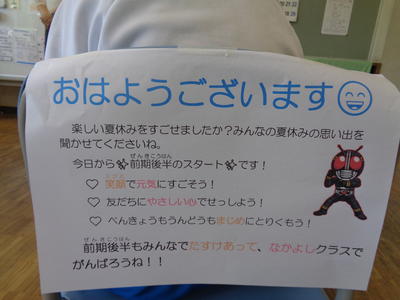 おはようございます
楽しい夏休みをすごせましたか？みんなの夏休みの思い出を
聞かせてくださいね。
今日から前期後半のスタートです！
♡ 笑顔で元気にすごそう！
♡ 友だちにやさしい心でせっしよう！
♡ べんきょうもうんどうもまじめにとりくもう！
前期後半もみんなでたすけあって、なかよしクラスで
がんばろうね！！